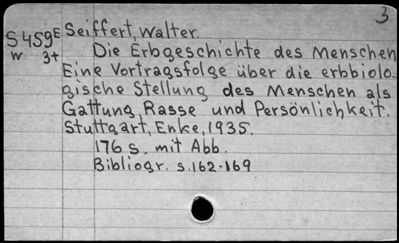 3
S459E Seiffert, Walter.
W 3+ Die Erbgeschichte des Menschen
Eine Vortragsfolge über die erbbiolo-
gische Stellung des Menschen als
Gattung, Rasse und Persönlichkeit.
Stuttgart, Enke, 1935.
176 s. mit Abb.
Bibliogr. s.162-169